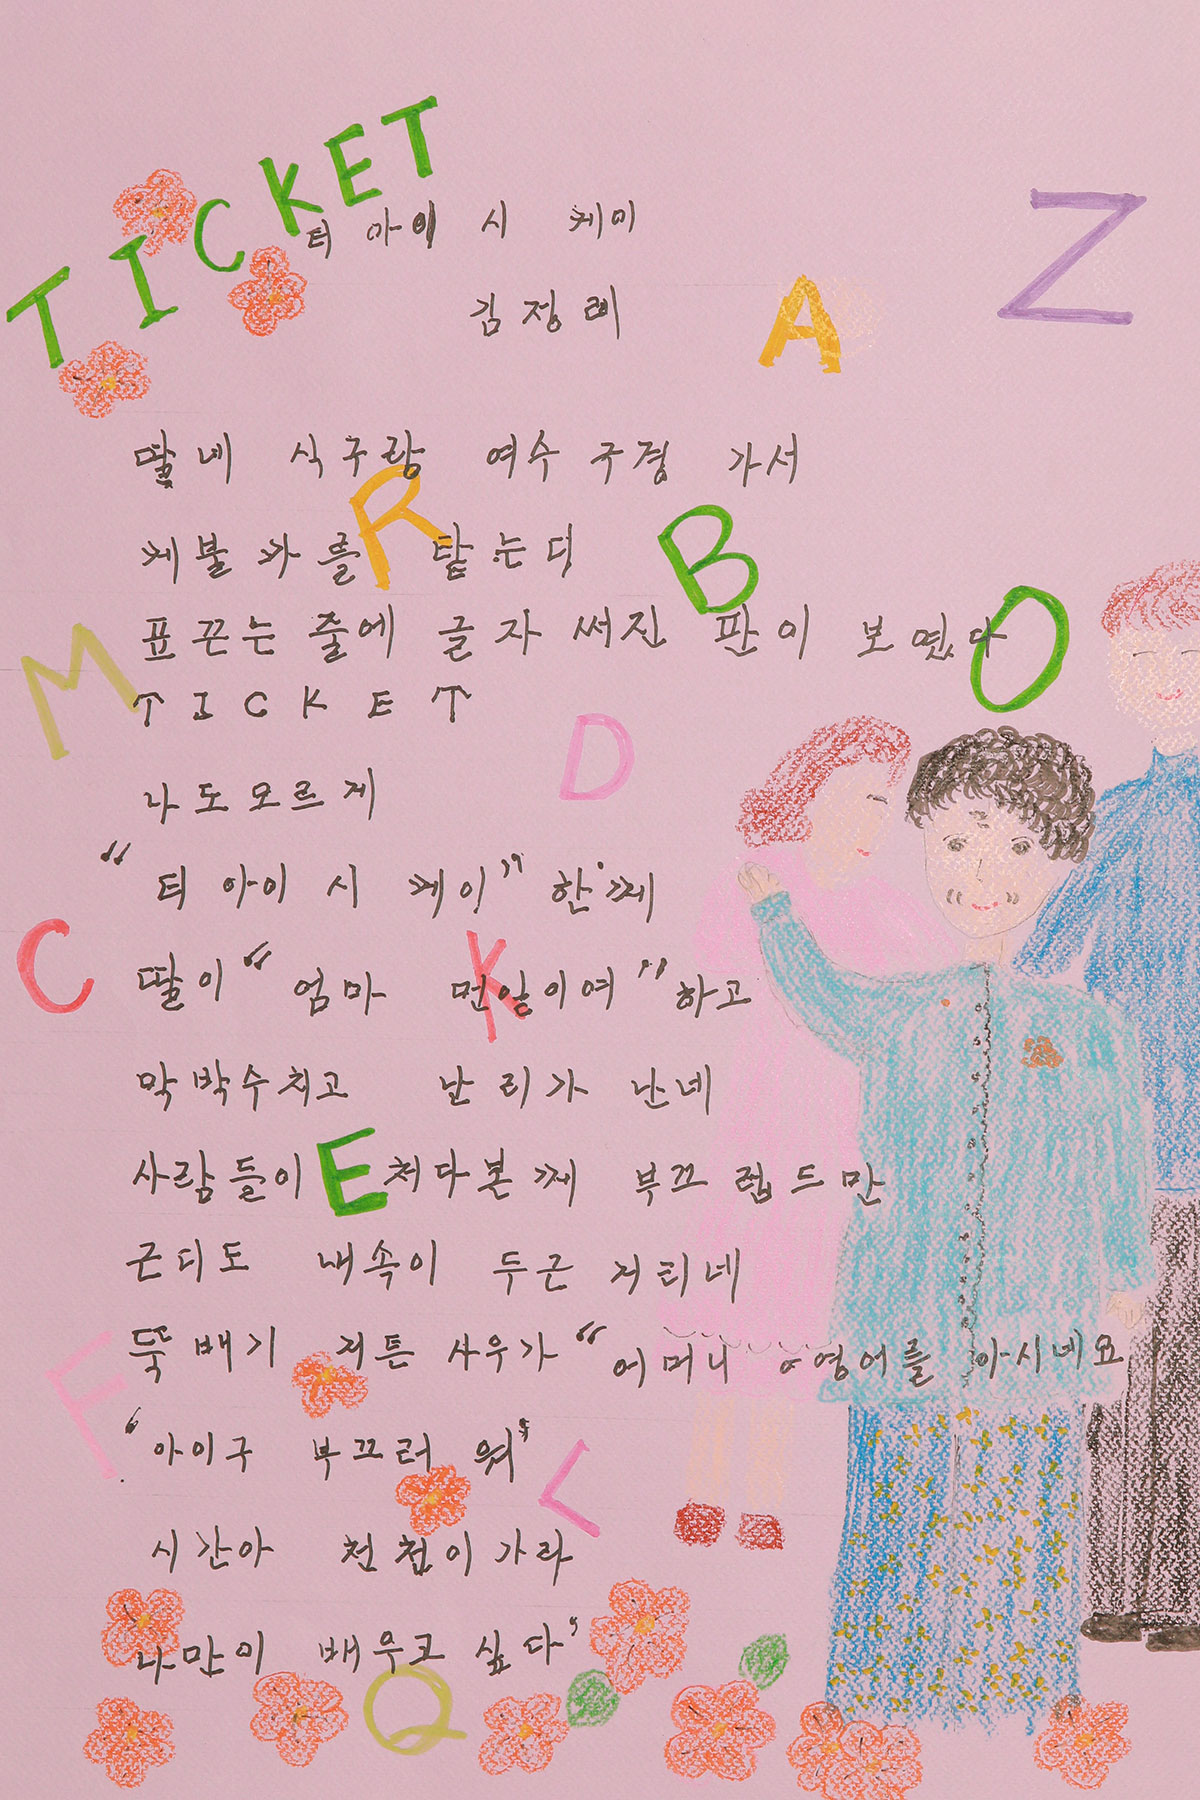 TICKET
티 아이 시 케이
김정례
Z
A
딸네 식구랑 여수 구경 가서
R
B
케불카를 탙는디
표끈는 줄에 글자 써진 판이 보였다
O
M
TICKET
D
나도모르게
“티 아이 시 케이” 한께
C
K
딸이 “엄마 먼일이여” 하고
막박수치고 난리가 난네
E
사람들이 처다본께 부끄럽드만
근디도 내속이 두근 거티네
F
뚝배기 거튼 사우가 “어머니 영어를 아시네요
“아이구 부끄러 워”
L
시간아 천첨이가라
나만이 배우코 싶다”
Q